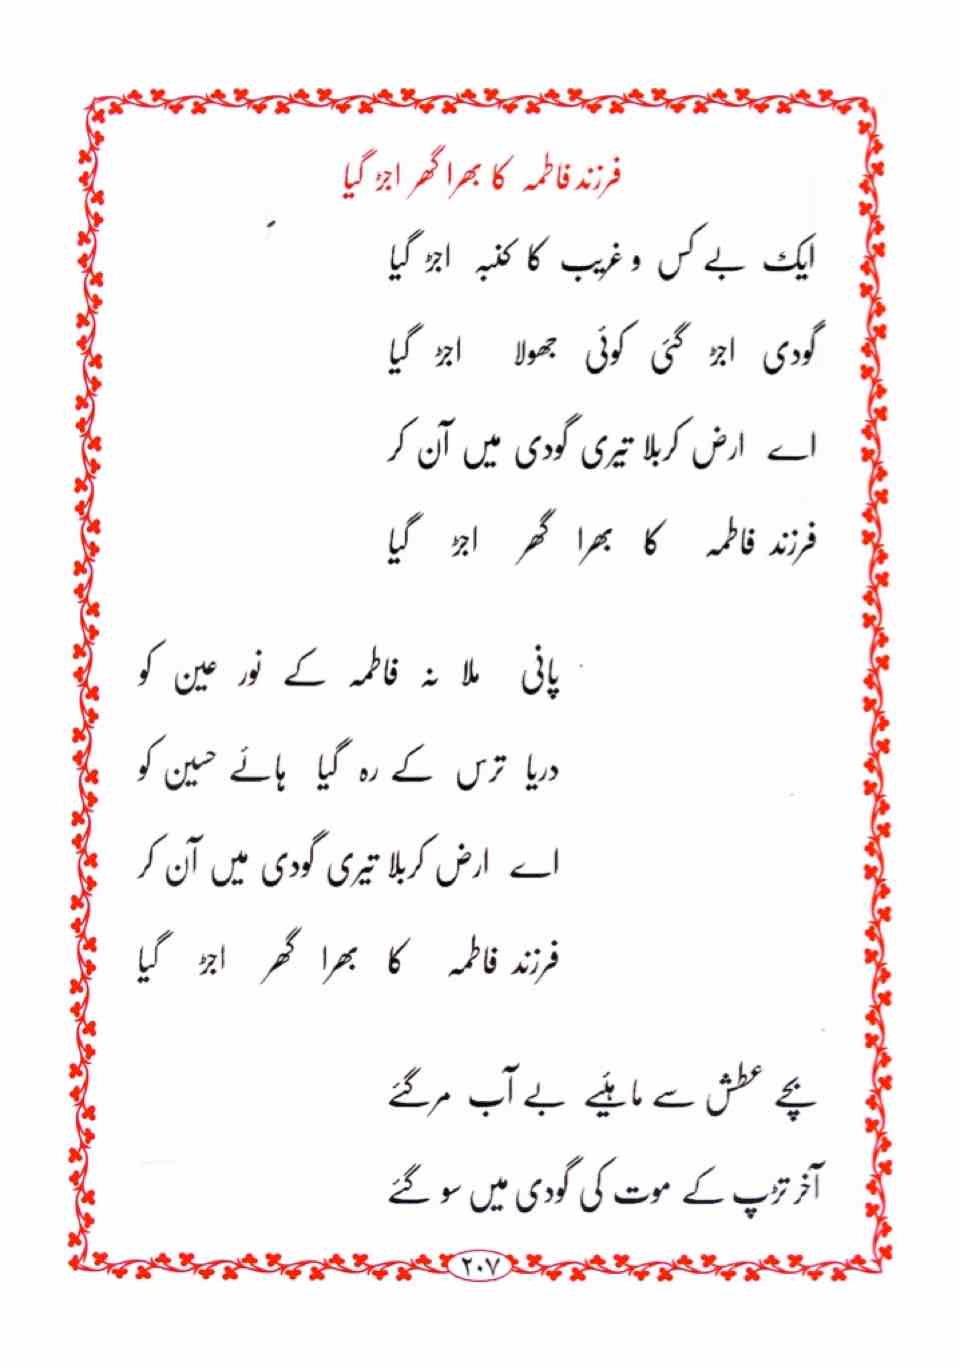 فرزند فاطمہ کا بھرا گھر اجڑ گیا
ایک بے کس و غریب کا کنبہ اجڑ گیا
گودی اجڑ گئی کوئی جھولا اجڑ گیا
اے ارض کربلا تیری گودی میں آن کر
فرزند فاطمہ کا بھرا گھر اجڑ گیا
پانی ملا نہ فاطمہ کے نور عین کو
دریا ترس کے رہ گیا ہائے حسین کو
اے ارض کربلا تیری گودی میں آن کر
فرزند فاطمہ کا بھرا گھر اجڑ گیا
بچے عطش سے ماہئیے بے آب مر گئے
آخر تڑپ کے موت کی گودی میں سو گئے
۲۰۷